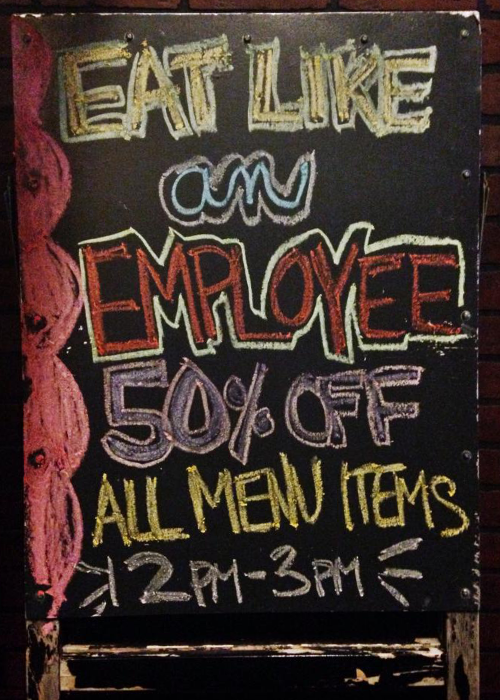 EAT LIKE
an
EMPLOYEE
50% OFF
ALL MENU ITEMS
2PM-3PM